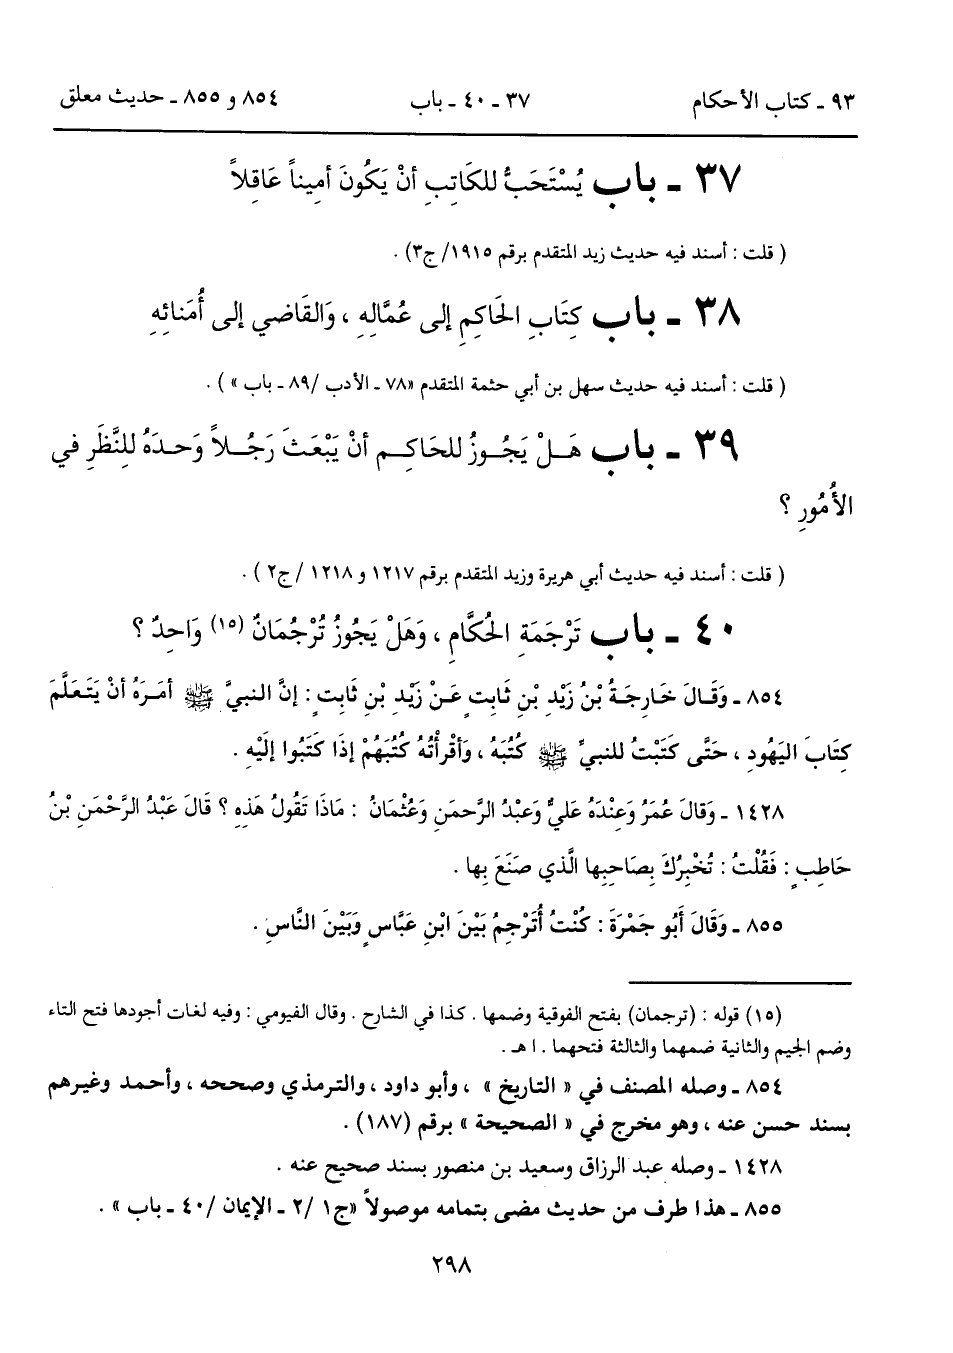 ٩٣ ـ كتاب الأحكام ٣٧ ـ ٤٠ ـ باب ٨٥٤ و ٨٥٥ ـ حديث معلق
٣٧ ـ باب يُسْتَحَبُّ للكَاتِبِ أنْ يَكُونَ أمِيناً عَاقِلاً
( قلت : أسند فيه حديث زيد المتقدم برقم ١٩١٥/ ج٣) .
٣٨ ـ باب كِتَابِ الحَاكِمِ إلى عُمَّالِهِ ، وَالقَاضي إلى أُمَنائِهِ
( قلت : أسند فيه حديث سهل بن أبي حثمة المتقدم «٧٨ ـ الأدب /٨٩ ـ باب » ) .
٣٩ ـ باب هَـلْ يَجُـوزُ للحَاكِـمِ أنْ يَبْعَثَ رَجُـلاً وَحـدَهُ للِنَّظَرِ في
الأُمُورِ ؟
( قلت : أسند فيه حديث أبي هريرة وزيد المتقدم برقم ١٢١٧ و ١٢١٨ /ج٢ ) .
٤٠ ـ باب تَرْجَمَةِ الحُكَّامِ ، وَهَلْ يَجُوزُ تُرْجُمَانٌ (١٥) وَاحِدٌ ؟
٨٥٤ ـ وَقَـالَ خَارِجَـةُ بْنُ زَيْدِ بْنِ ثَابِتٍ عَـنْ زَيْدِ بْنِ ثَابِتٍ : إنَّ النبيَّ ﷺ أمَـرَهُ أنْ يَتَعَلَّمَ
كِتَابَ اليَهُودِ ، حَتَّى كَتَبْتُ للنبيِّ ﷺ كُتُبَهُ ، وَأقْرأتُهُ كُتُبَهُمْ إذَا كَتَبُوا إلَيْهِ .
١٤٢٨ ـ وَقالَ عُمَرُ وَعِنْدَهُ عَليٌّ وَعبْدُ الرَّحمَنِ وَعُثْمَانُ : مَاذَا تَقُولُ هَذِهِ ؟ قَالَ عَبْدُ الرَّحْمَنِ بْنُ
حَاطِبٍ : فَقُلْتُ : تُخْبِرُكَ بِصَاحِبِها الَّذي صَنَعَ بِها .
٨٥٥ ـ وَقَالَ أبُو جَمْرَةَ : كُنْتُ أُتَرْجِمُ بَيْنَ ابْنِ عَبَّاسٍ وَبَيْنَ النَّاسِ .
(١٥) قوله : (ترجمان) بفتح الفوقية وضمها . كذا في الشارح . وقال الفيومي : وفيه لغات أجودها فتح التاء
وضم الجيم والثانية ضمهما والثالثة فتحهما . ا هـ .
٨٥٤ ـ وصله المصنف في « التاريخ » ، وأبو داود ، والترمذي وصححه ، وأحمد وغيرهم
بسند حسن عنه ، وهو مخرج في « الصحيحة » برقم (١٨٧) .
١٤٢٨ ـ وصله عبد الرزاق وسعيد بن منصور بسند صحيح عنه .
٨٥٥ ـ هذا طرف من حديث مضى بتمامه موصولاً «ج١ /٢ ـ الإيمان /٤٠ ـ باب » .
٢٩٨